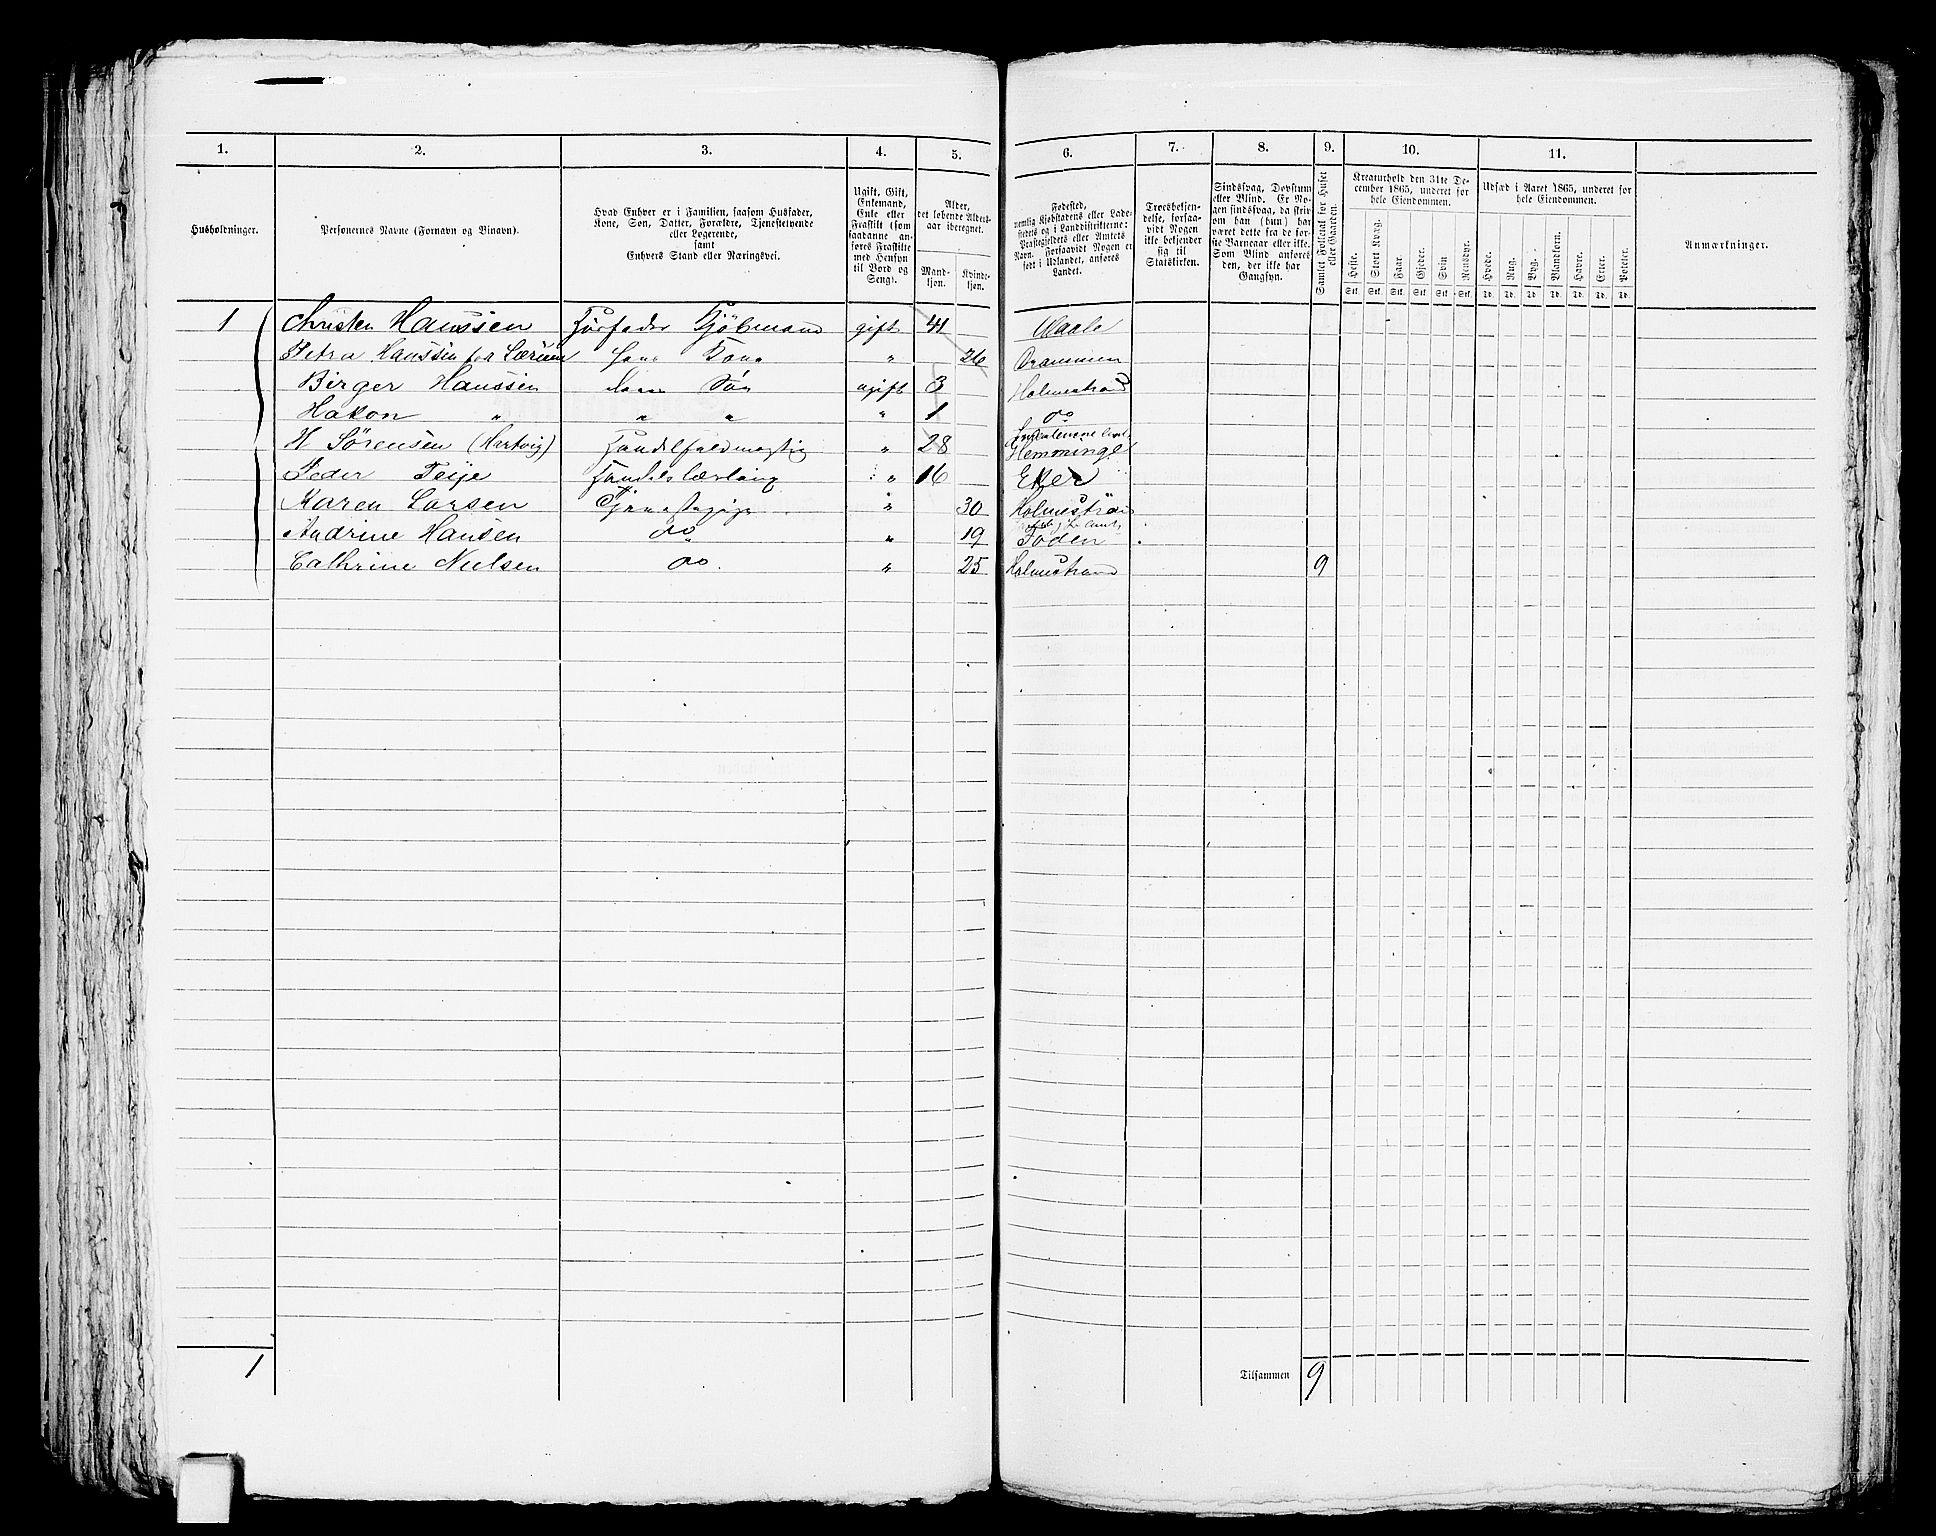 1. 2. 3. 4. 5. 6. 7. 8. 9. 10. 11.
Husholdninger.
Personernes Navne (Fornavn og Binavn).
Hvad Enhver er i Familien, saasom Husfader,
Kone, Søn, Datter, Forældre, Tjenestetyende
eller Logerende,
samt
Enhvers Stand eller Næringsvei.
Ugift, Gift,
Enkemand,
Enke eller
Fraskilt (som
saadanne an-
føres Fraskilte
med Hensyn
til Bord og
Seng).
Alder,
det løbende Alders-
aar iberegnet.
Mand-
kjøn.
Kvinde-
kjøn.
Fødested,
nemlig Kjøbstadens eller Lade-
stedets og i Landdistrikterne:
Præstegjeldets eller Amtets
Navn. Forsaavidt Nogen er
født i Udlandet, anføres
Landet.
Troesbekjen-
delse, forsaa-
vidt Nogen
ikke bekjender
sig til
Statskirken.
Sindssvag, Døvstum
eller Blind. Er No-
gen sindssvag, da skri-
ves om han (hun) har
været dette fra de før-
ste Barneaar eller ikke.
Som Blind anføres
den, der ikke har
Gangsyn.
Samlet Folketal for Huset
eller Gaarden.
Kreaturhold den 31te De-
cember 1865, underet for
hele Eiendommen.
Heste. Stort Kvæg. Faar. Gjeder. Svin Rensdyr.
Stk. Stk. Stk. Stk. Stk. Stk.
Udsæd i Aaret 1865, underet for
hele Eiendommen.
Hvede. Rug. Byg. Blandkorn. Havre. Erter. Poteter.
Td. Td. Td. Td. Td. Td. Td.
Anmærkninger.
1 Christen Hanssen Husfader Kjøbmand gift 41 Vaale
Petra Hanssen Kone " 26 Drammen
Birger Hanssen Søn ugift 3 Holmestrand
Hakon " " " " 1 do
H Sørensen (Hartvig) Handelsfuldmægtig " 28
Peder Teije Handelslærling " 16 Eker
Karen Larsen Tjenestepige " 30 Holmestrand
Andrine Hansen do " 19
Cathrine Nielsen do " 25 Holmestrand 9
1 Tilsammen 9